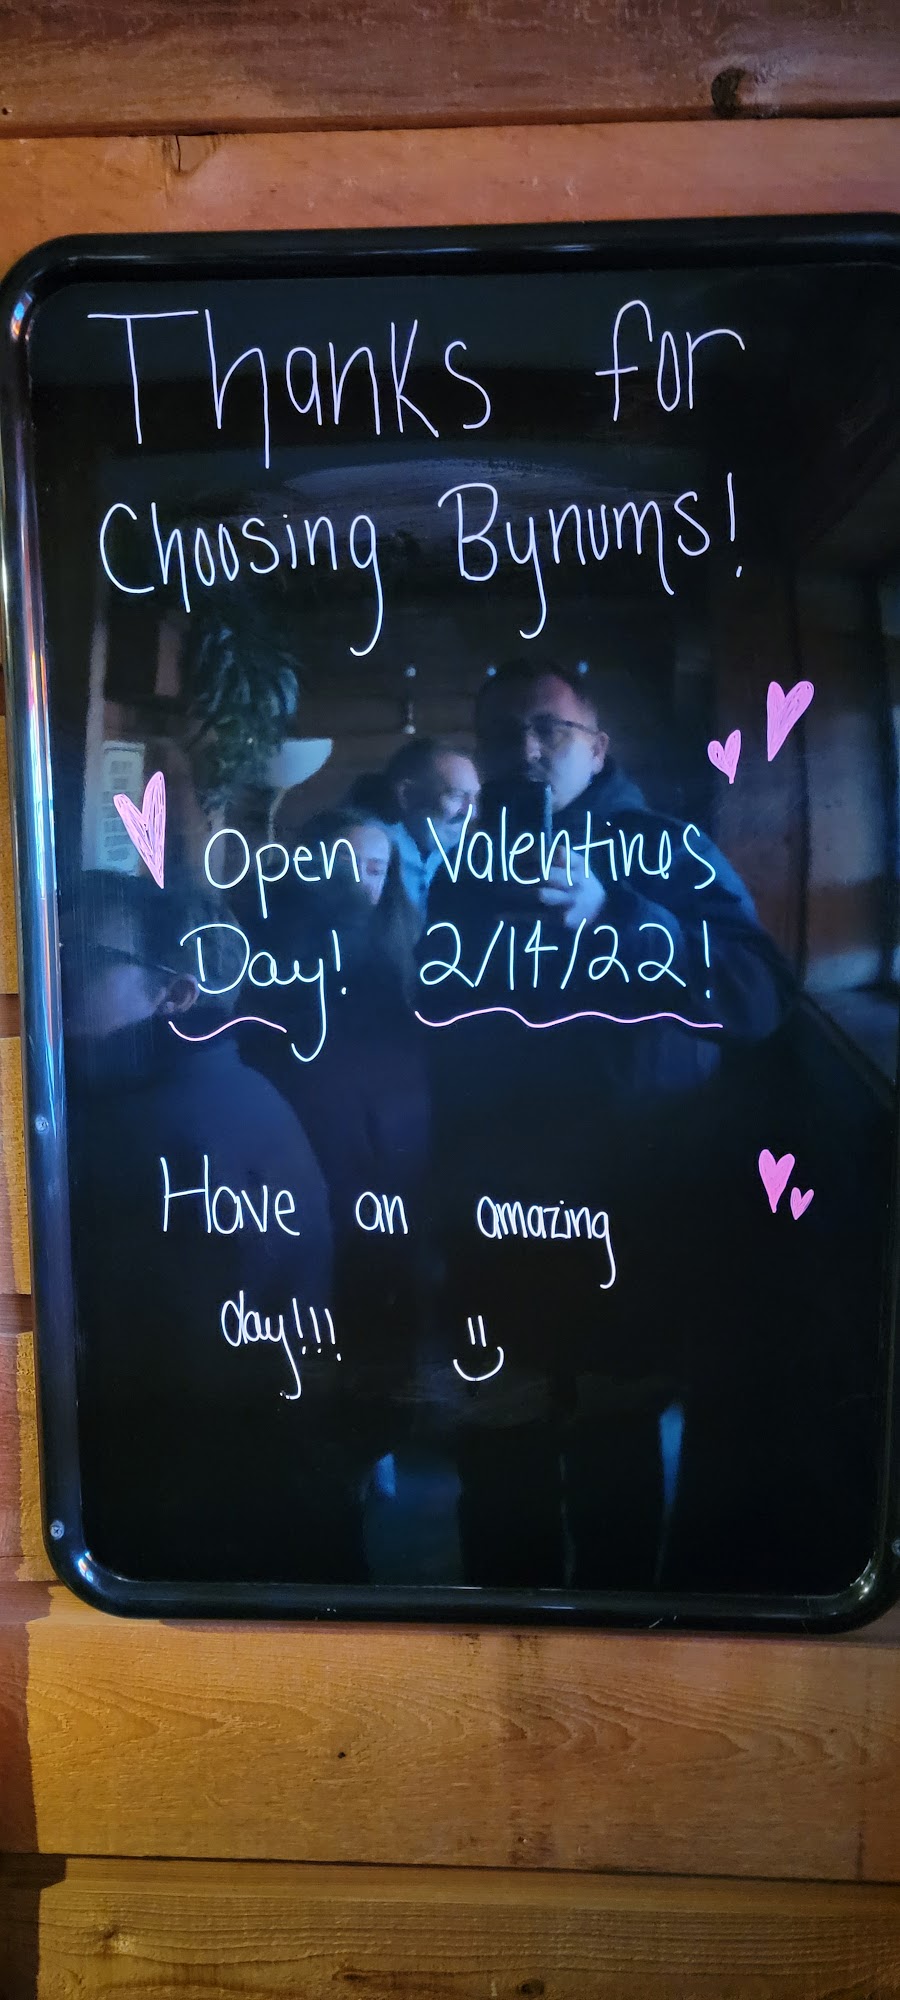 Thanks for
Choosing Bynums!
Open Valentines
Day! 2/14/22!
Have an amazing
day!!!